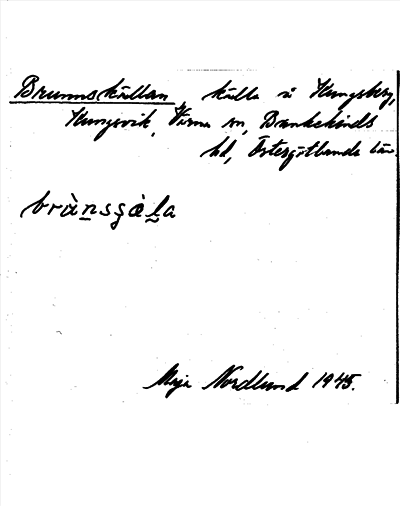 Brunnskällan, källa å Kungsberg,
Kungsvik, Värna sn, Bankekinds
hd, Östergötlands län.
brànsgæ̀la
Maja Nordlund 1945.